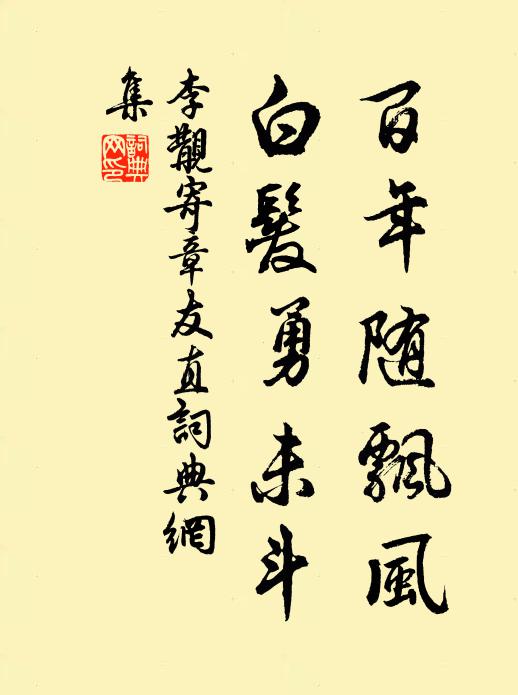 百年随飄風
白髮勇未斗
李觀寄章友直詞典網
集
詞典
网印